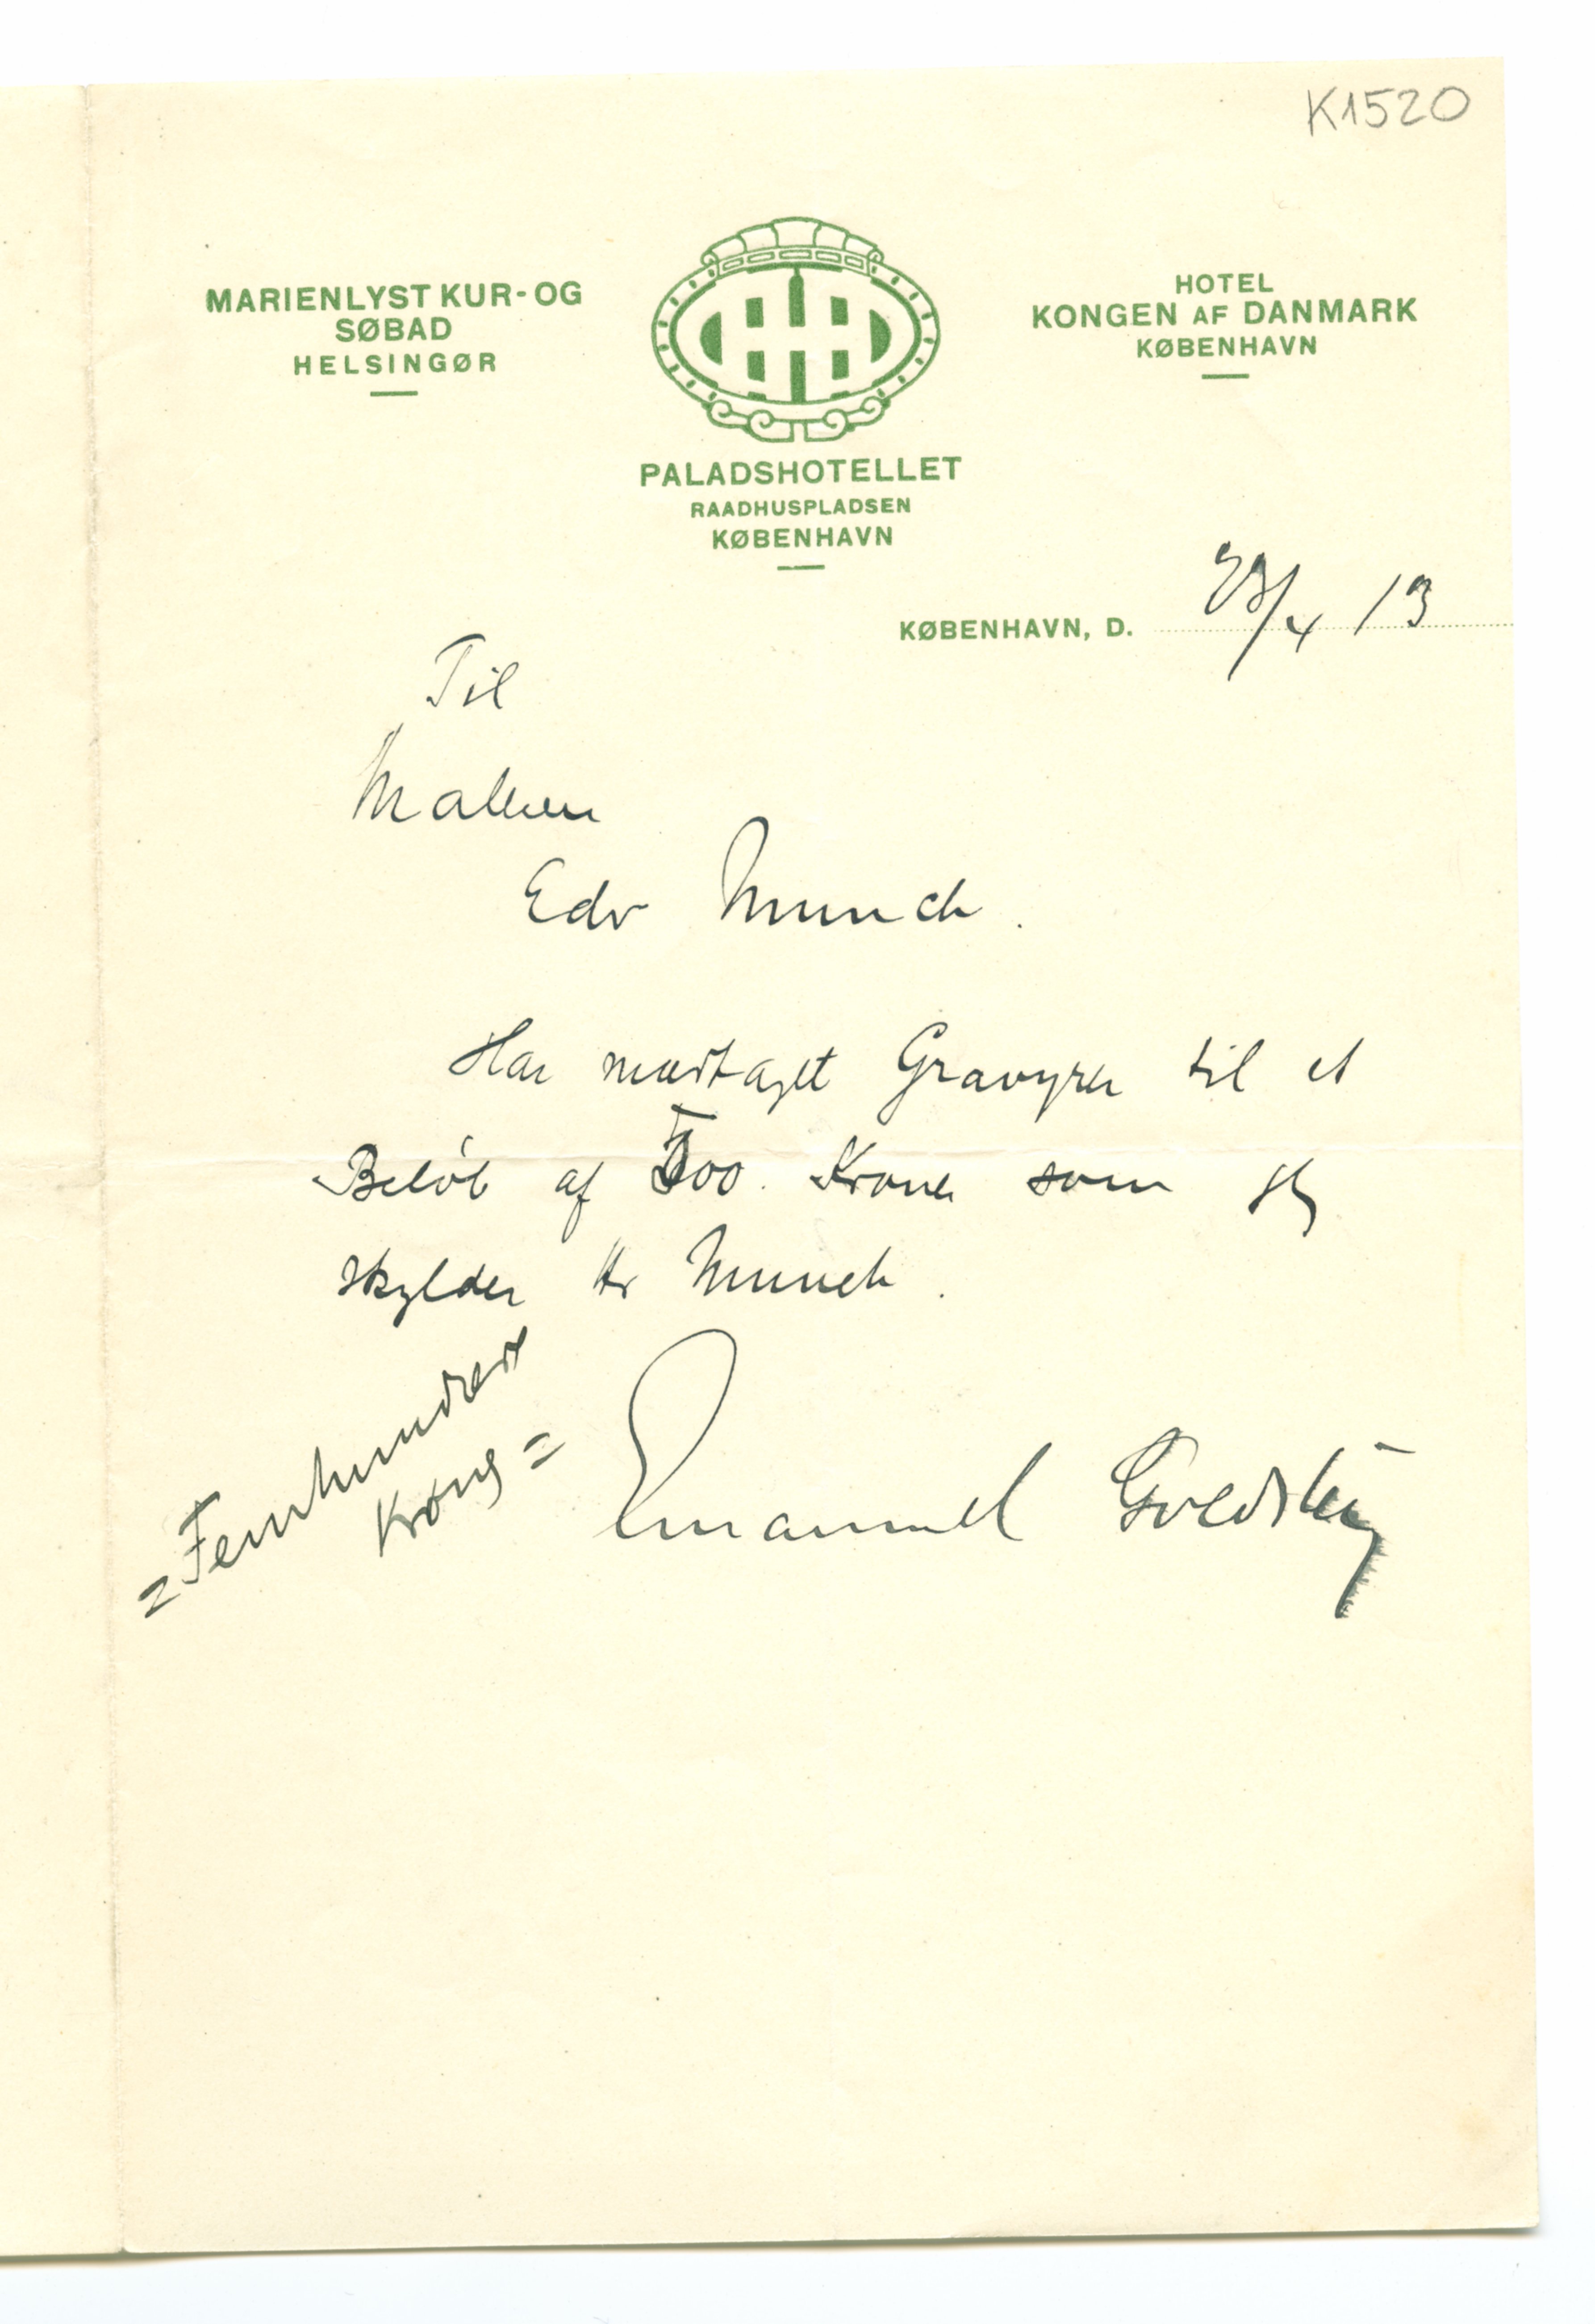 K1520
MARIENLYST KUR-OG
SØBAD
HELSINGØR
HOTEL
KONGEN AF DANMARK
KØBENHAVN
PALADSHOTELLET
RAADHUSPLADSEN
KØBENHAVN
KØBENHAVN, D. 28/4 13
Til
Maleren
Edv Munch.
Har modtaget Gravyrer til et
Beløb af 500. Kroner som jeg
skylder Hr Munch.
=Femhundred
Kroner=
Emanuel Goldstein